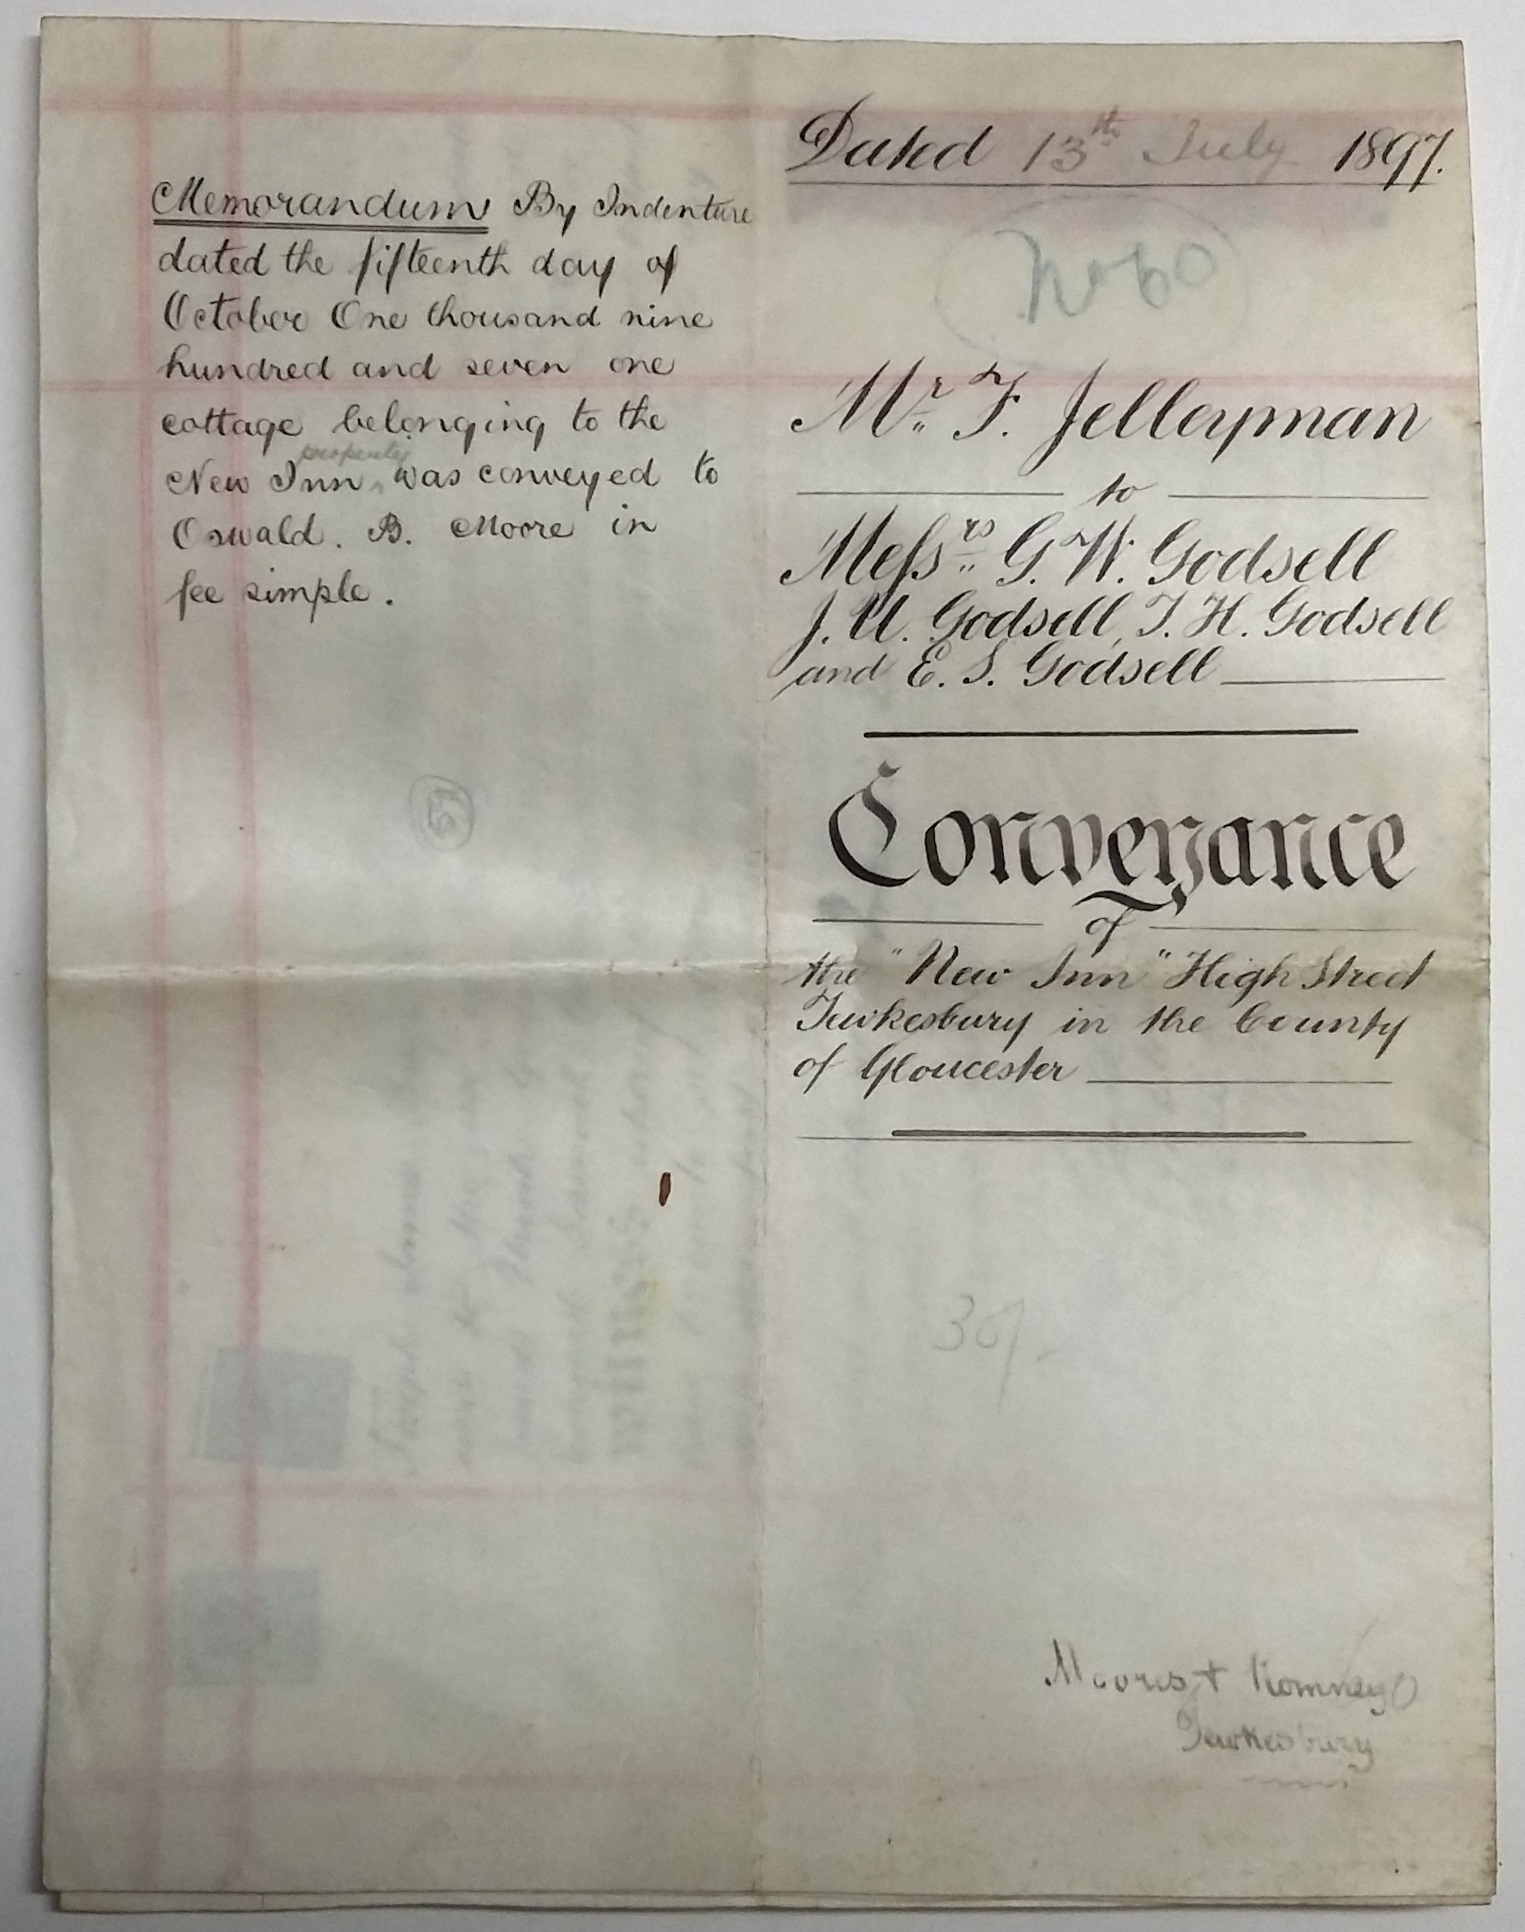 Memorandum By Indenture
dated the fifteenth day of
October One thousand nine
hundred and seven one
cottage belonging to the
property
New Inn ‸ was conveyed to
Oswald. B. Moore in
fee simple.
5
Dated 13th July 1897.
No 60
Mr. F. Jelleyman
to
Messrs. G. W. Godsell
J. U. Godsell, T. H. Godsell
and E. S. Godsell
Conveyance
of
the "New Inn" High Street
Tewkesbury in the County
of Gloucester
30/-
Moores & Romney
Tewkesbury